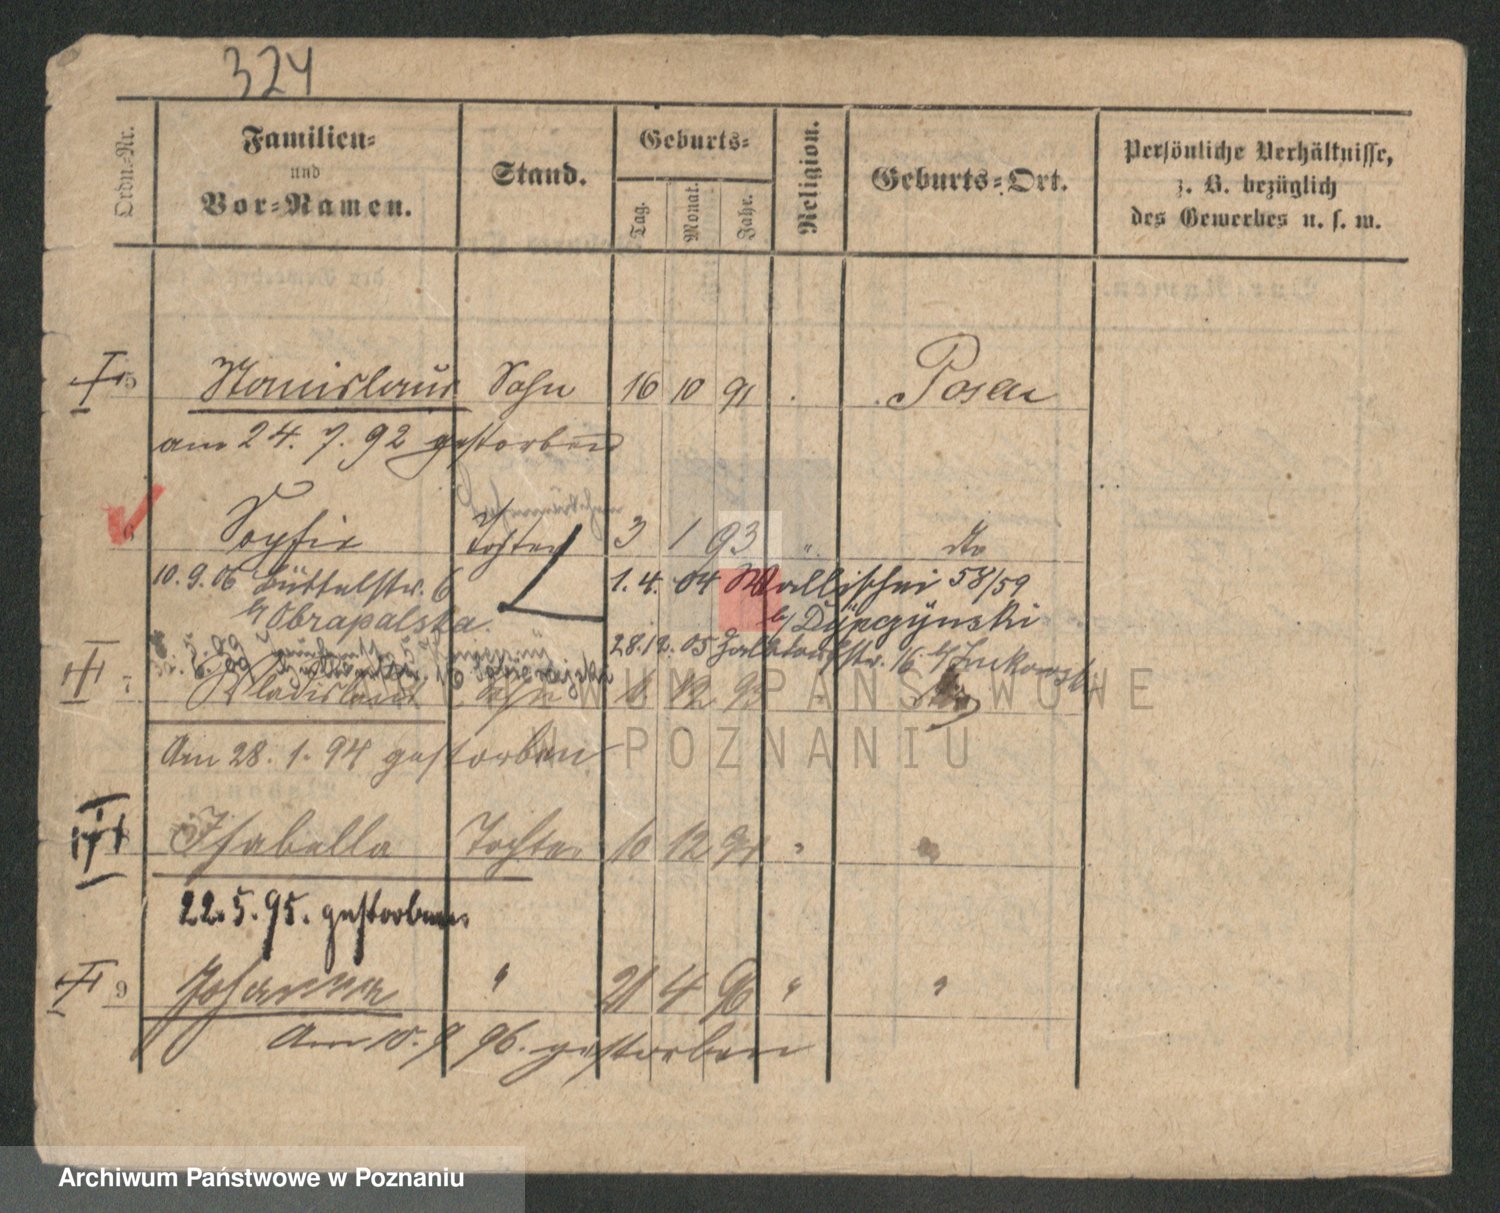 324
Ordn.-Nr.
Familien-
und
Vor-Namen.
Stand.
Geburts-
Tag.
Monat.
Jahr.
Religion.
Geburts-Ort.
Persönliche Verhältnisse,
z. B. bezüglich
des Gewerbes u. s. w.
5 Stanislaus Sohn 16 10 91 Posen
am 24. 7. 92 gestorben
6 Sophie Tochter 3 1 93 " do
10.9.06 Büttelstr. 6 1. 4. 04 Wallischei 58/59
b/ Obrapalska b/ Dypczynski
28.12.05 16 b/
7 Vladislaus Sohn 12 93
Am 28. 1. 94 gestorben
8 Isabella Tochter 10 12 "
22. 5. 95. gestorben
9 Johanna " 21 4 96 " "
Am 10. 9 96. gestorben
ARCHIWUM PAŃSTWOWE
W POZNANIU
Archiwum Państwowe w Poznaniu